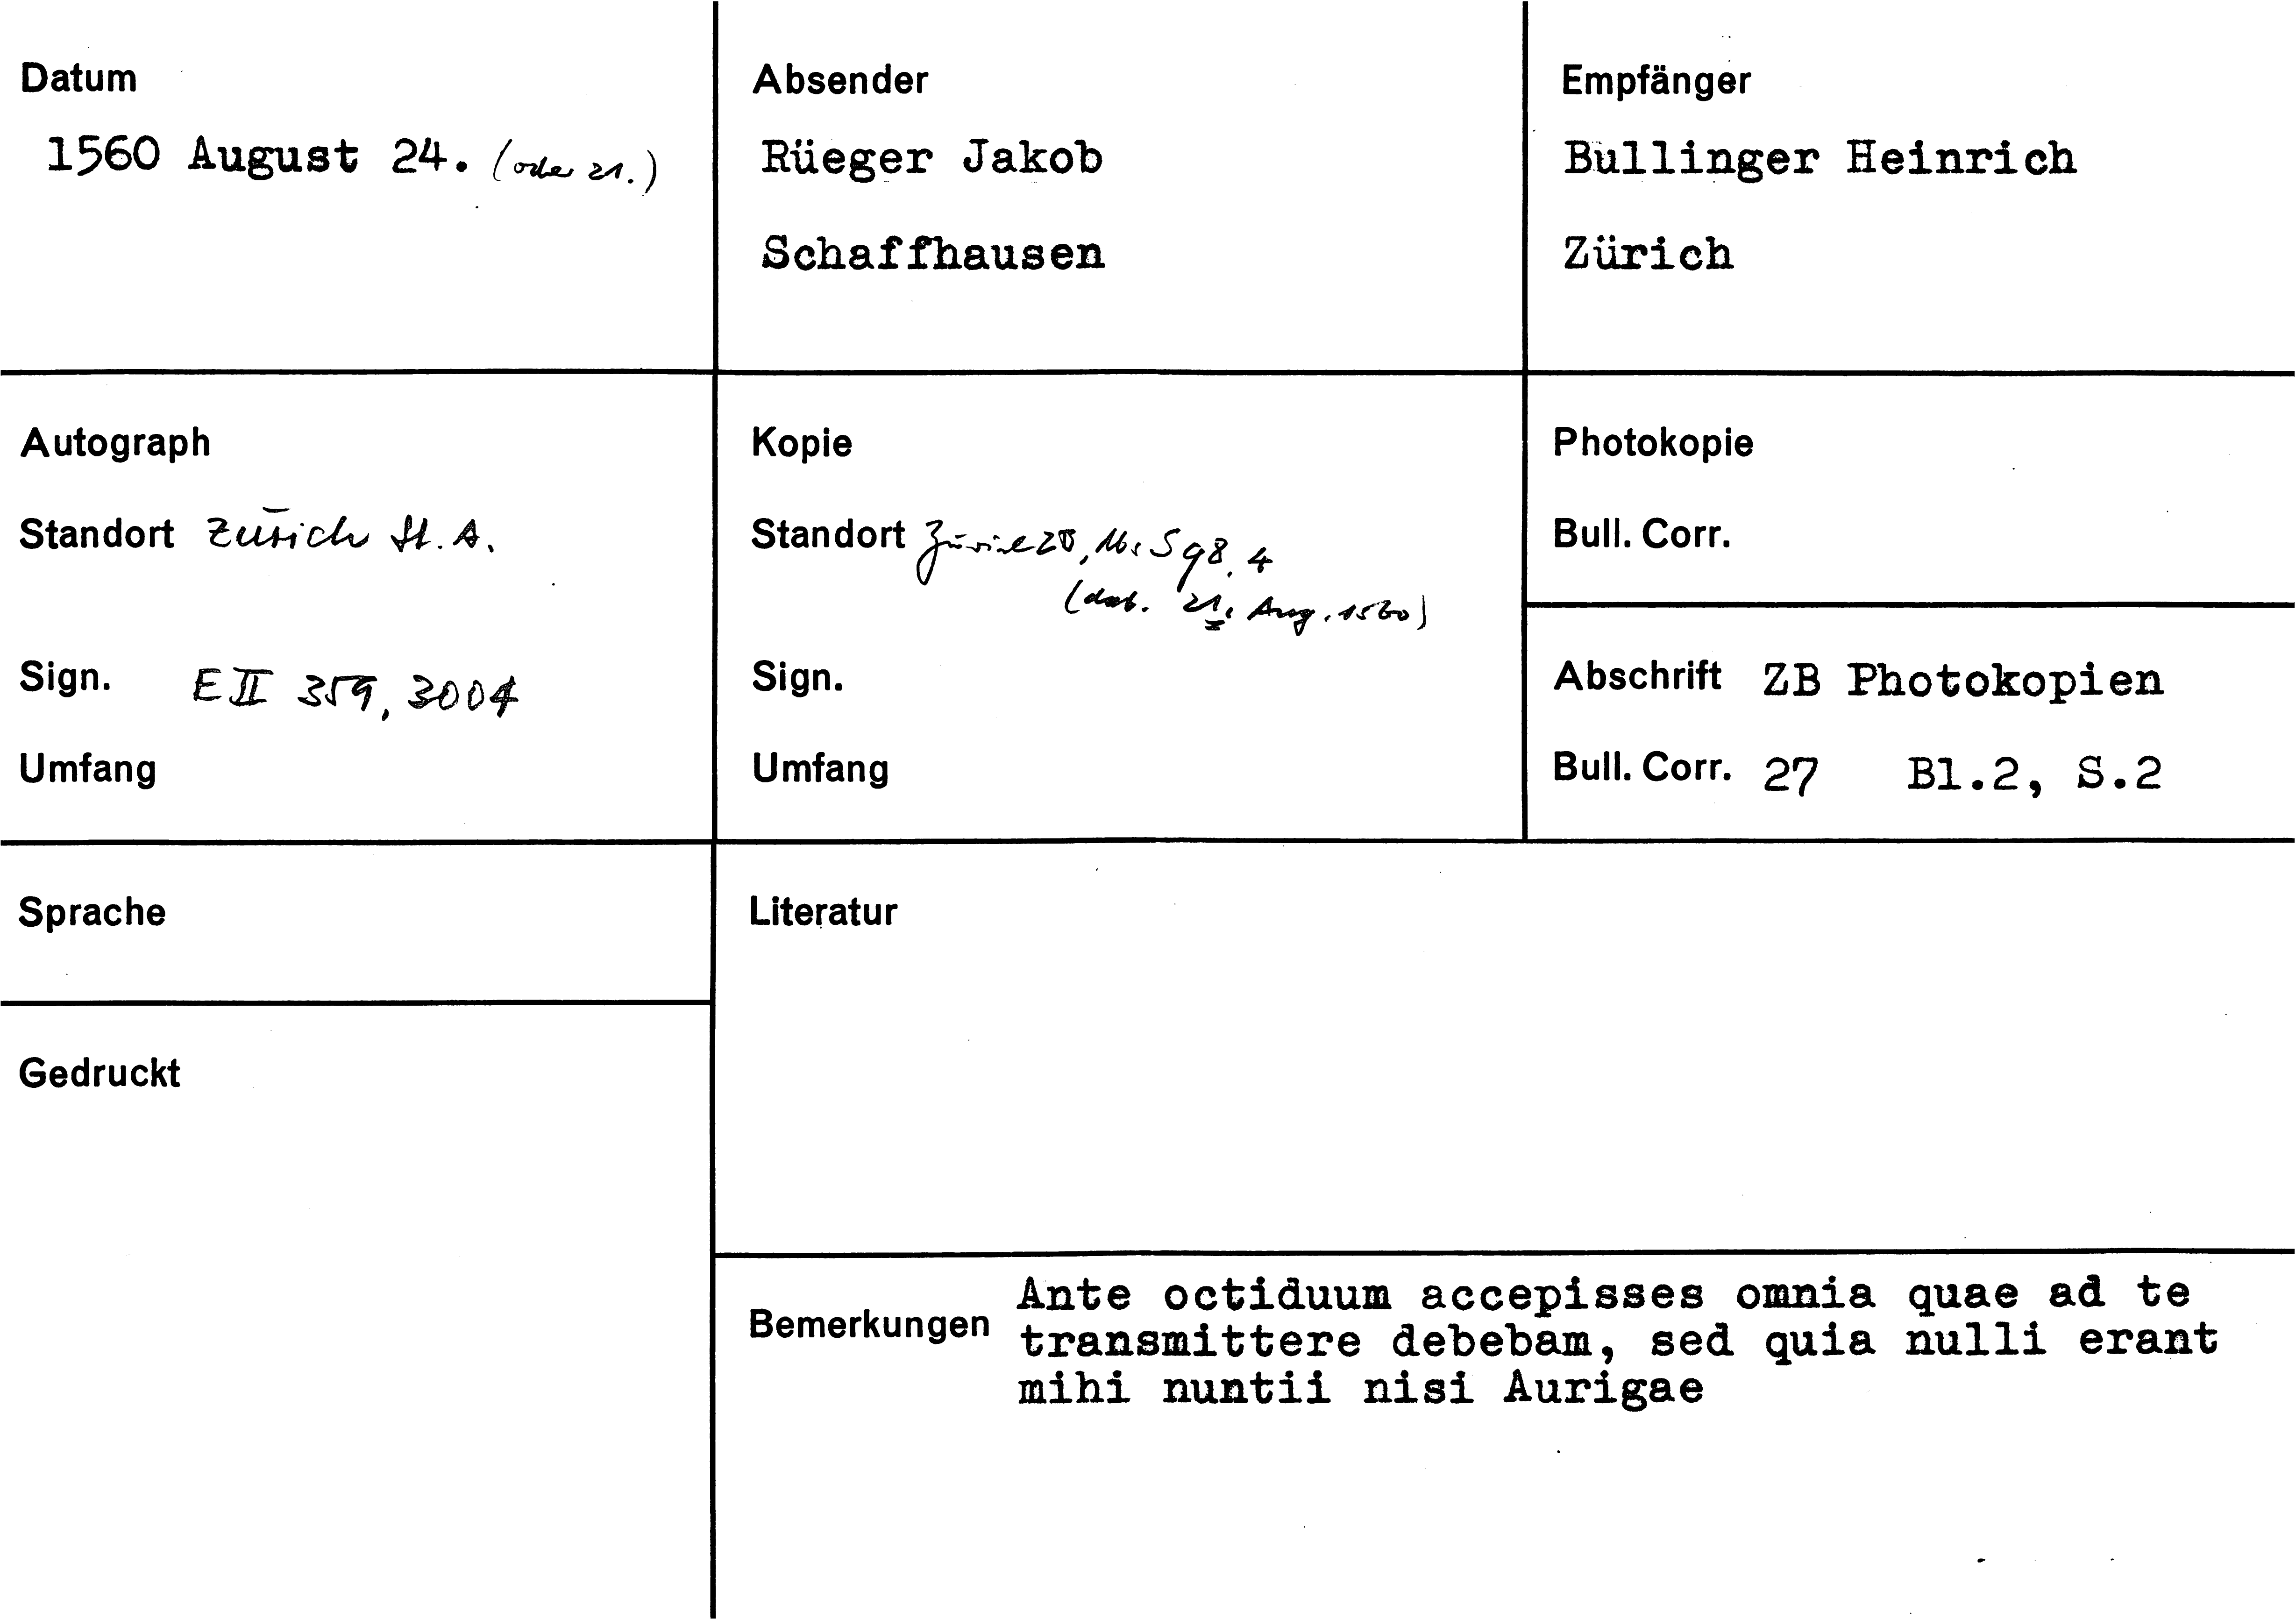 Datum
1560 August 24. (oder 21.)
Absender
Rüeger Jakob
Schaffhausen
Empfänger
Bullinger Heinrich
Zürich
Autograph
Standort Zürich St. A.
Sign. E II 359, 3004
Umfang
Kopie
Standort Zürich ZB, Ms S 98, 4
(dat. 21. Aug. 1560)
Sign.
Umfang
Photokopie
Bull. Corr.
Abschrift ZB Photokopien
Bull. Corr. 27 Bl.2, S.2
Sprache
Gedruckt
Literatur
Bemerkungen
Ante octiduum accepisses omnia quae ad te
transmittere debebam, sed quia nulli erant
mihi nuntii nisi Aurigae